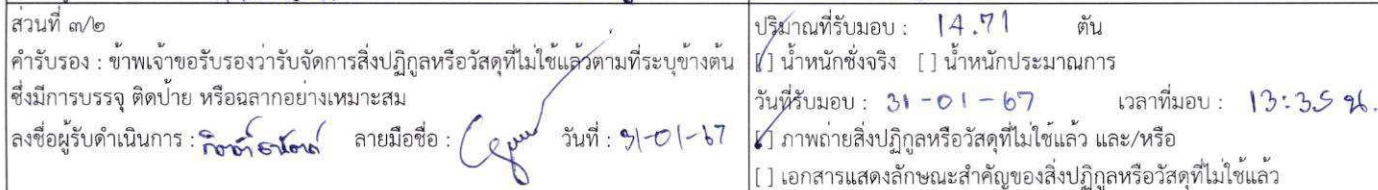 ส่วนที่ ๓/๒
คำรับรอง : ข้าพเจ้าขอรับรองว่ารับจัดการสิ่งปฏิกูลหรือวัสดุที่ไม่ใช้แล้วตามที่ระบุข้างต้น
ซึ่งมีการบรรจุ ติดป้าย หรือฉลากอย่างเหมาะสม
ลงชื่อผู้รับดำเนินการ : ลายมือชื่อ : วันที่ : 31-01-67
ปริมาณที่รับมอบ : 14.71 ตัน
[/] น้ำหนักชั่งจริง [ ] น้ำหนักประมาณการ
วันที่รับมอบ : 31-01-67 เวลาที่มอบ : 13:35 น.
[/] ภาพถ่ายสิ่งปฏิกูลหรือวัสดุที่ไม่ใช้แล้ว และ/หรือ
[ ] เอกสารแสดงลักษณะสำคัญของสิ่งปฏิกูลหรือวัสดุที่ไม่ใช้แล้ว